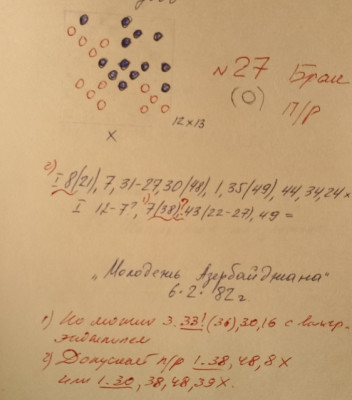 №27 Брак
(О)
п/р
12×13
X
2) I 8(21), 7, 31-27, 30(98), 1, 35(49), 44, 34, 24×
I 12-7?, 7(38)? 43(22-27), 49=
"Молодежь Азербайджана"
6-2-82г.
1) Но можно 3. 33! (36), 30, 16 с
2) Допускает п/р 1.38, 48, 8X
или 1.30, 38, 48, 39X.